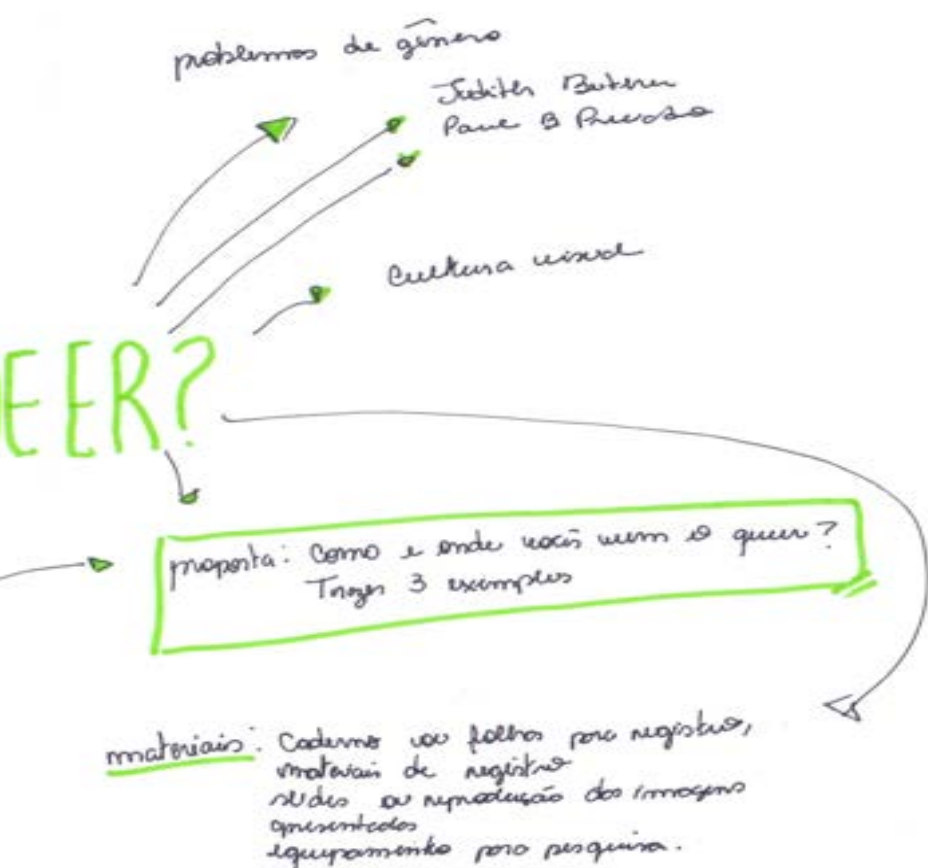 problemas de gênero
Judith Butler
Paul B Preciado
Cultura visual
EER?
proposta: Como e onde vocês veem o queer?
Trazer 3 exemplos
materiais: Caderno ou folhas para registro,
materiais de registro
slides ou reprodução das imagens
apresentadas
equipamento para pesquisa.